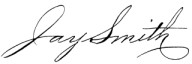 Jay Smith